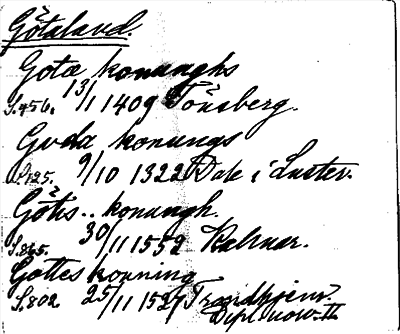 Götaland.
Gotæ konunghs
S.456. 13/1 1409 Tönsberg.
Guda konungs
S.125. 9/10 1322 Dale i Luster.
Götis.. konungh.
S.865. 30/11 1552 Kalmar.
Göttes konning
S.802 25/11 1527 Trondhjem.
Dipl. norv. II